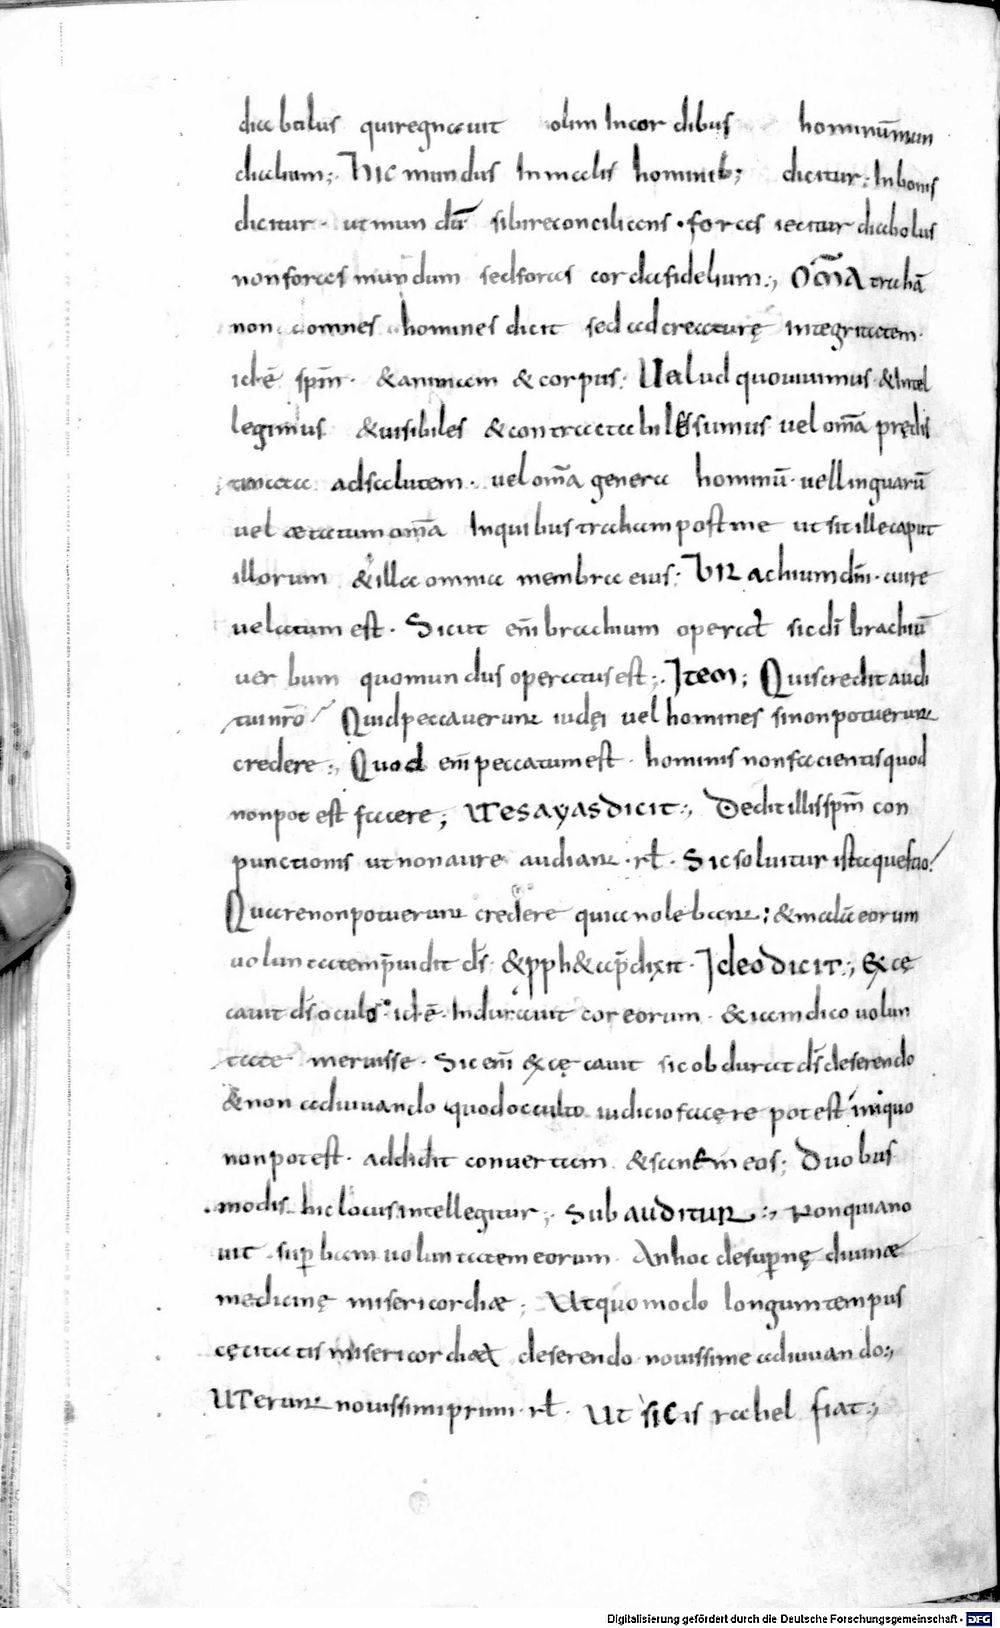 diabolus quiregnauit olim Incordibus hominūmun
dialium; hic mundus Inmalis hominib; dicitur; Inbonis
dicitur· utmundū sibireconcilians · foras iecitur diabolus
nonforas mundum sedforas cordafidelium; Om̄a trahā
non omnes homines dicit sed adcreaturę integritatem·
idē sp̄m · &animam &corpus; Vel ud quouiuimus &intel
legimus &uisibiles &contractabiles sumus uel om̄a prędis
tinata adsalutem· uel om̄a genera hominū· uellinguarū
uel ætatum om̄a Inquibus traham postme ut sit illecaput
illorum &illa omnia membra eius; bRachiumdn̄i· cui re
uelatum est· Sicut em̄ brachium operat sicdī brachiū
uerbum quomundus operatusest; Item; Quiscredit audi
tuinr̄o Quidpeccauerunt iudęi uel homines sinonpotuerunt
credere; Quod em̄ peccatumest· hominis nonfacientisquod
nonpotest facere; UTesayasdicit; Dedit illisspm̄ con
punctionis utnonaure audiant· rł· Sicsoluitur istaquestio
Quarenonpotuerunt credere quia nolebant; &malā eorum
uoluntatemp̄uidit ds̄· &pph&āp̄dixit· Ideodicit; Excę
cauit ds̄oculos· idē· Indurauit cor eorum· &iamdico uolun
tate meruisse· Sic em̄ excęcauit sicobdurat ds̄deserendo
&non adiuuando quodocculto iudiciofacęre potest iniquo
nonpotest· addidit conuertam &sanem eos; Duobus
modis hiclocusintellegitur; Subauditur; Nonquiano
uit sup̄bam uoluntatem eorum· An hoc desup̄nę diuinæ
medicinę misericordiæ; Utquomodo longumtempus
cęcitatis misericordiæ deserendo nouissime adiuuando;
UTerunt nouissimiprimi· rł· Ut sicis rahel fiat;
Digitalisierung gefördert durch die Deutsche Forschungsgemeinschaft - DFG